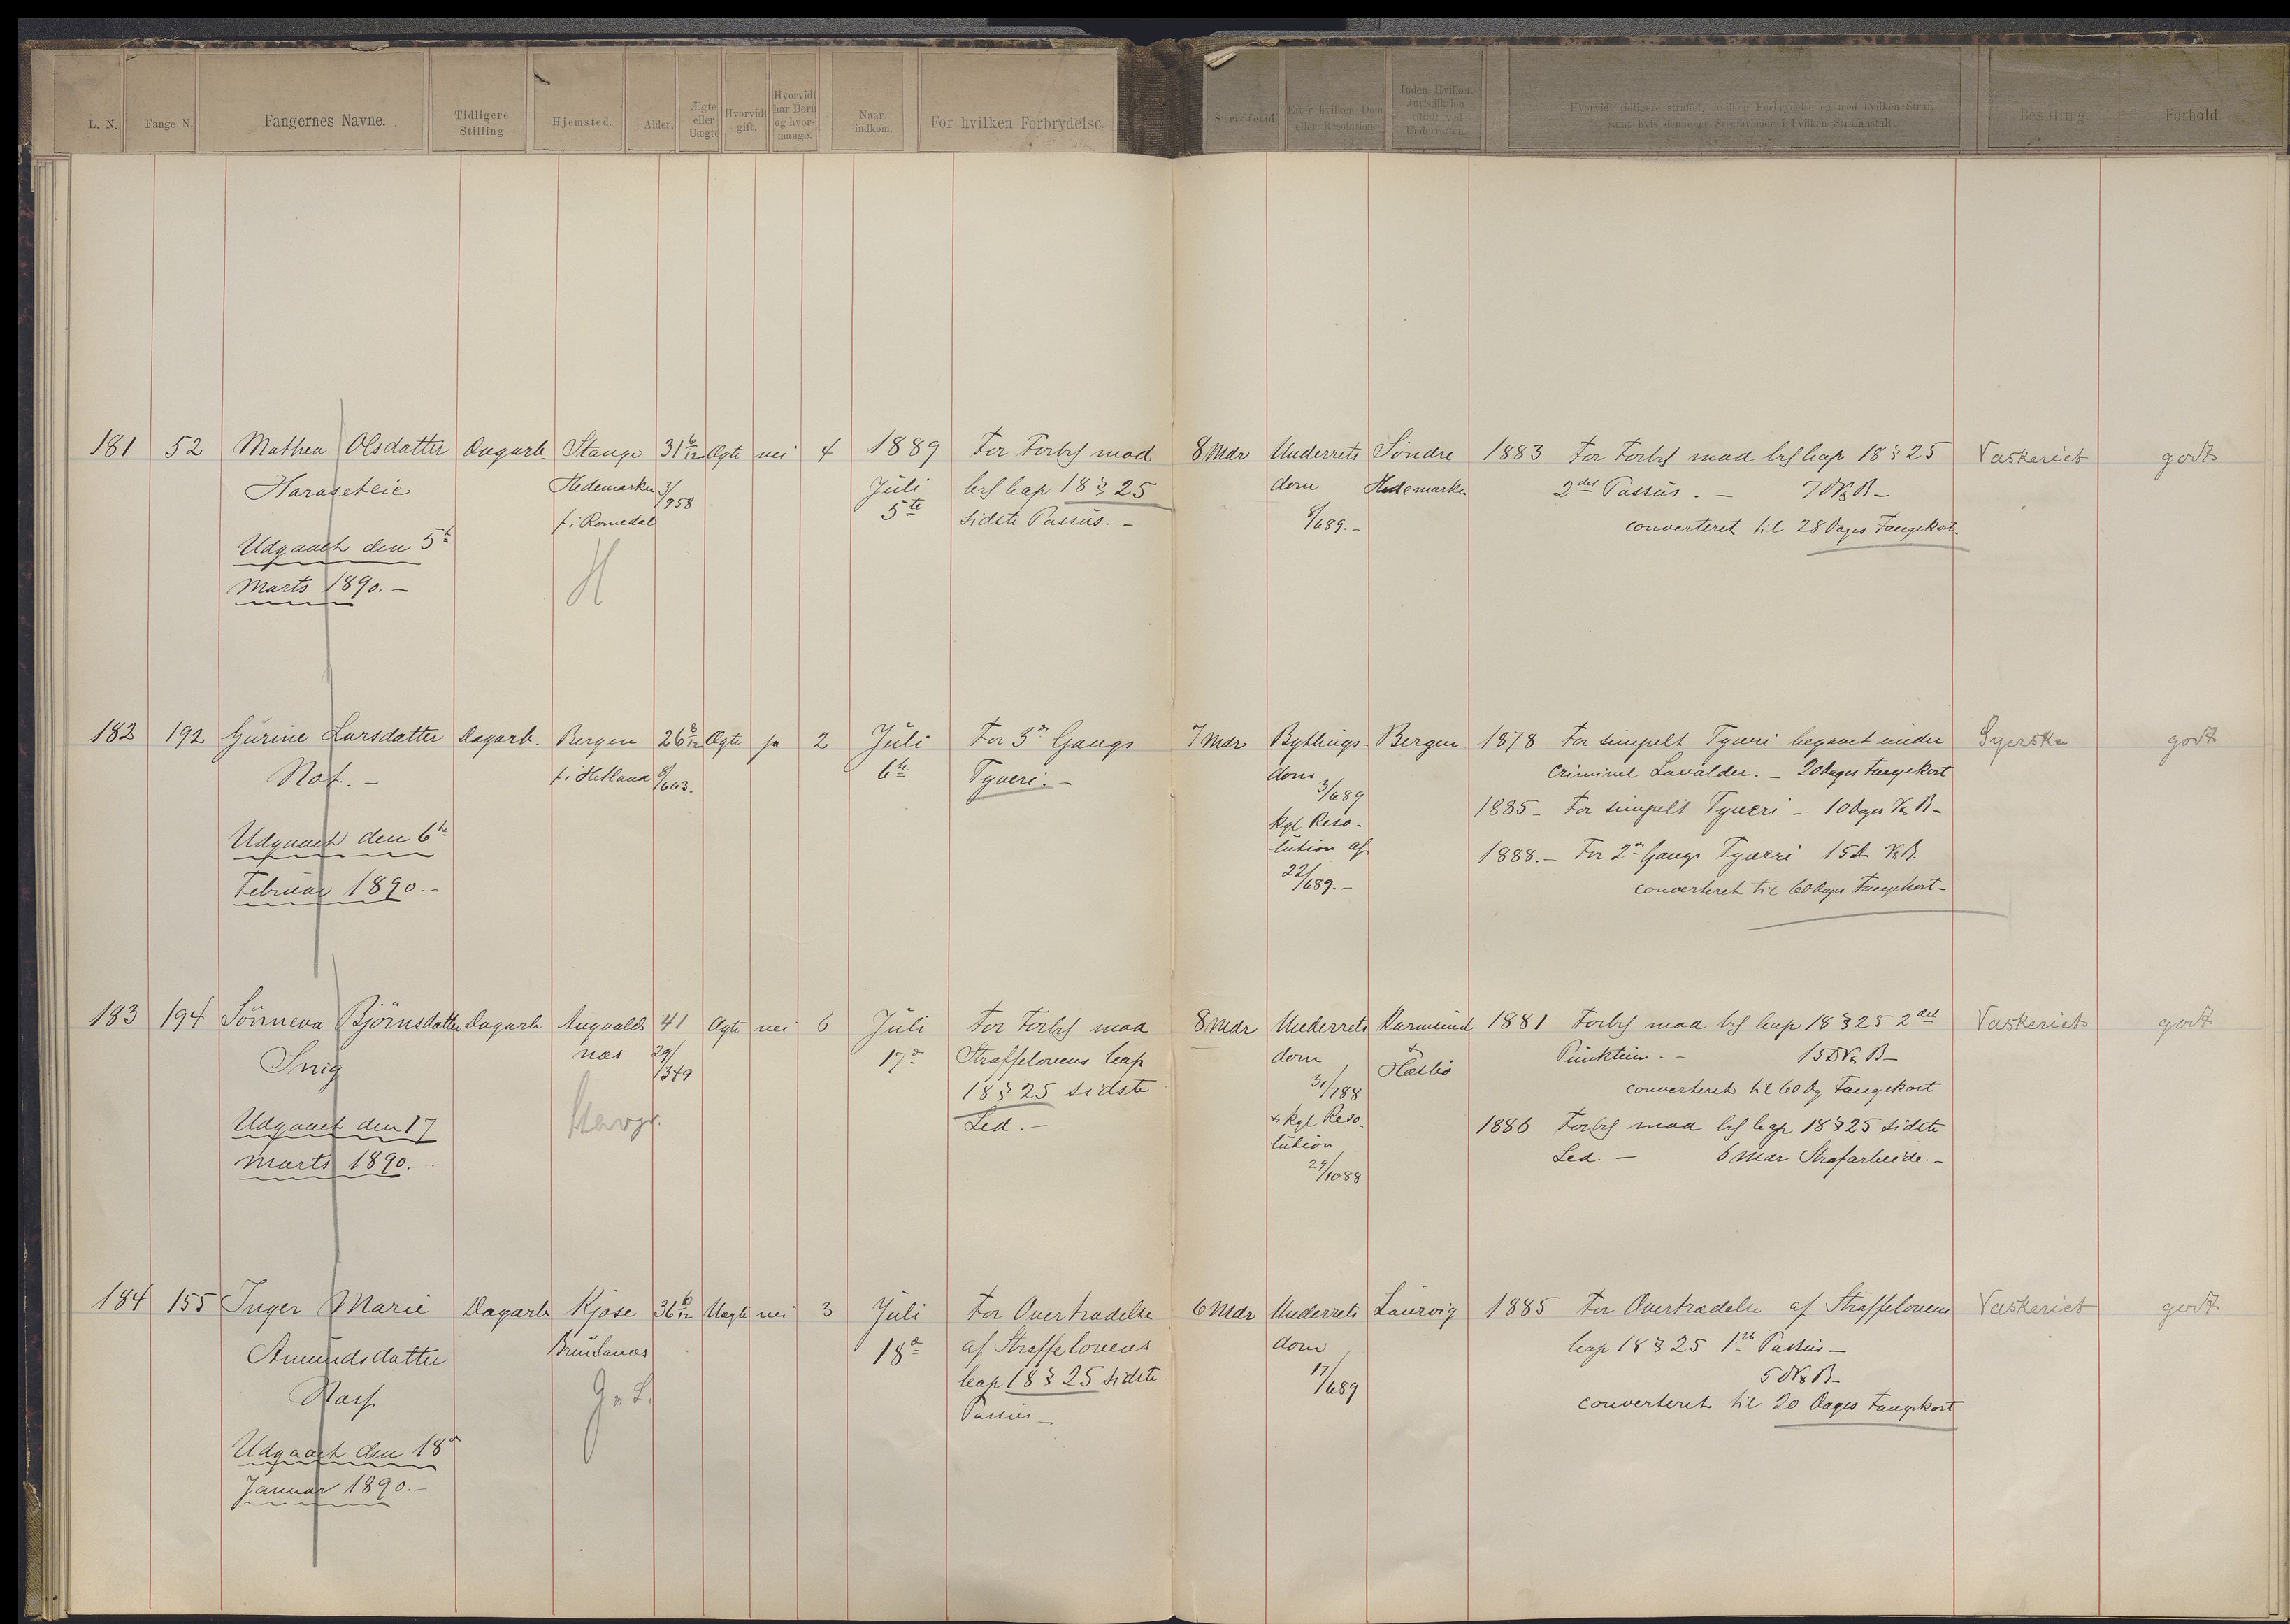 L. N.
Fange N.
Fangernes Navne.
Tidligere
Stilling
Hjemsted.
Alder.
Ægte
eller
Uægte
Hvorvidt
gift.
Hvorvidt
har Børn
og hvor-
mange.
Naar
indkom.
For hvilken Forbrydelse.
Straffetid.
Efter hvilken Dom
eller Resolution.
Inden Hvilken
Jurisdiktion
tiltalt ved
Underretten.
Hvorvidt tidligere straffet, hvilken Forbrydelse og med hvilken Straf,
samt hvis denne er Strafarbeide i hvilken Strafanstalt.
Bestilling
Forhold
181 52 Mathea Olsdatter Dagarb. Stange 31 6/12 Ægte nei 4 1889 For Forbr mod 8 Mdr Underrets Söndre 1883 For Forbr mod lrfs Cap 18 § 25 Vaskeriet godt
Haraseteie Hedemarken 3/958 Juli Cap 18 § 25 dom Hedemarken 2det Passus. –
f. i Romedal 5te sidste Passus. – 8/689. – converteret til 28 Dages Fangekost.
Udgaaet den 5te
Marts 1890. – H
182 192 Gurine Larsdatter Dagarb. Bergen 26 8/12 Ægte ja 2 Juli For 3die Gangs 7 Mdr Bythings- Bergen 1878 For simpelt Tyveri begaaet under Syerske godt
f. i Hetland 8/663. 6te Tyveri. – dom Criminel Lavalder. – 20 Dages Fangekost
3/689 1885 – For simpelt Tyveri – 10 Dages V & B –
Udgaaet den 6te kgl Reso-
lution af 1888. – For 2den Gangs Tyveri 15 D V & B.
Februar 1890. – 22/689. – converteret til 60 Dages Fangekost –
183 194 Sönneva Björnsdatter Dagarb Augvalds 41 Ægte nei 6 Juli For Forbr mod 8 Mdr Underrets Karmsund 1881 Forbr mod Cap 18 § 25 2det Vaskeriet godt
Snig nes 29/349 17de Straffelovens Cap dom & Punktum. – 15 D V & B –
18 § 25 sidste 31/788 converteret til 60 Dg Fangekost
Udgaaet den 17 Led. – & kgl Reso- 1886 Forbr mod Cap 18 § 25 sidste
Marts 1890. lution Led. – 6 Mdr Strafarbeide. –
29/1088
184 155 Inger Marie Dagarb Kjose 36 6/12 Uægte nei 3 Juli For Overtrædelse 6 Mdr Underrets Laurvig 1885 For Overtrædelse af Straffelovens Vaskeriet godt
Amundsdatter Brunlanæs 18de af Straffelovens dom Cap 18 § 25 1ste Passus –
Cap 18 § 25 sidste 17/689 5 D V & B –
Passus – converteret til 20 Dages Fangekost
Udgaaet den 18de
Januar 1890. –